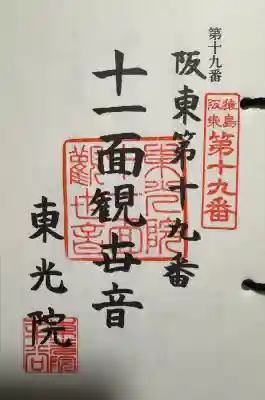 第十九番
猿島
阪東
第十九番
阪東第十九番
十一面観世音
東光院